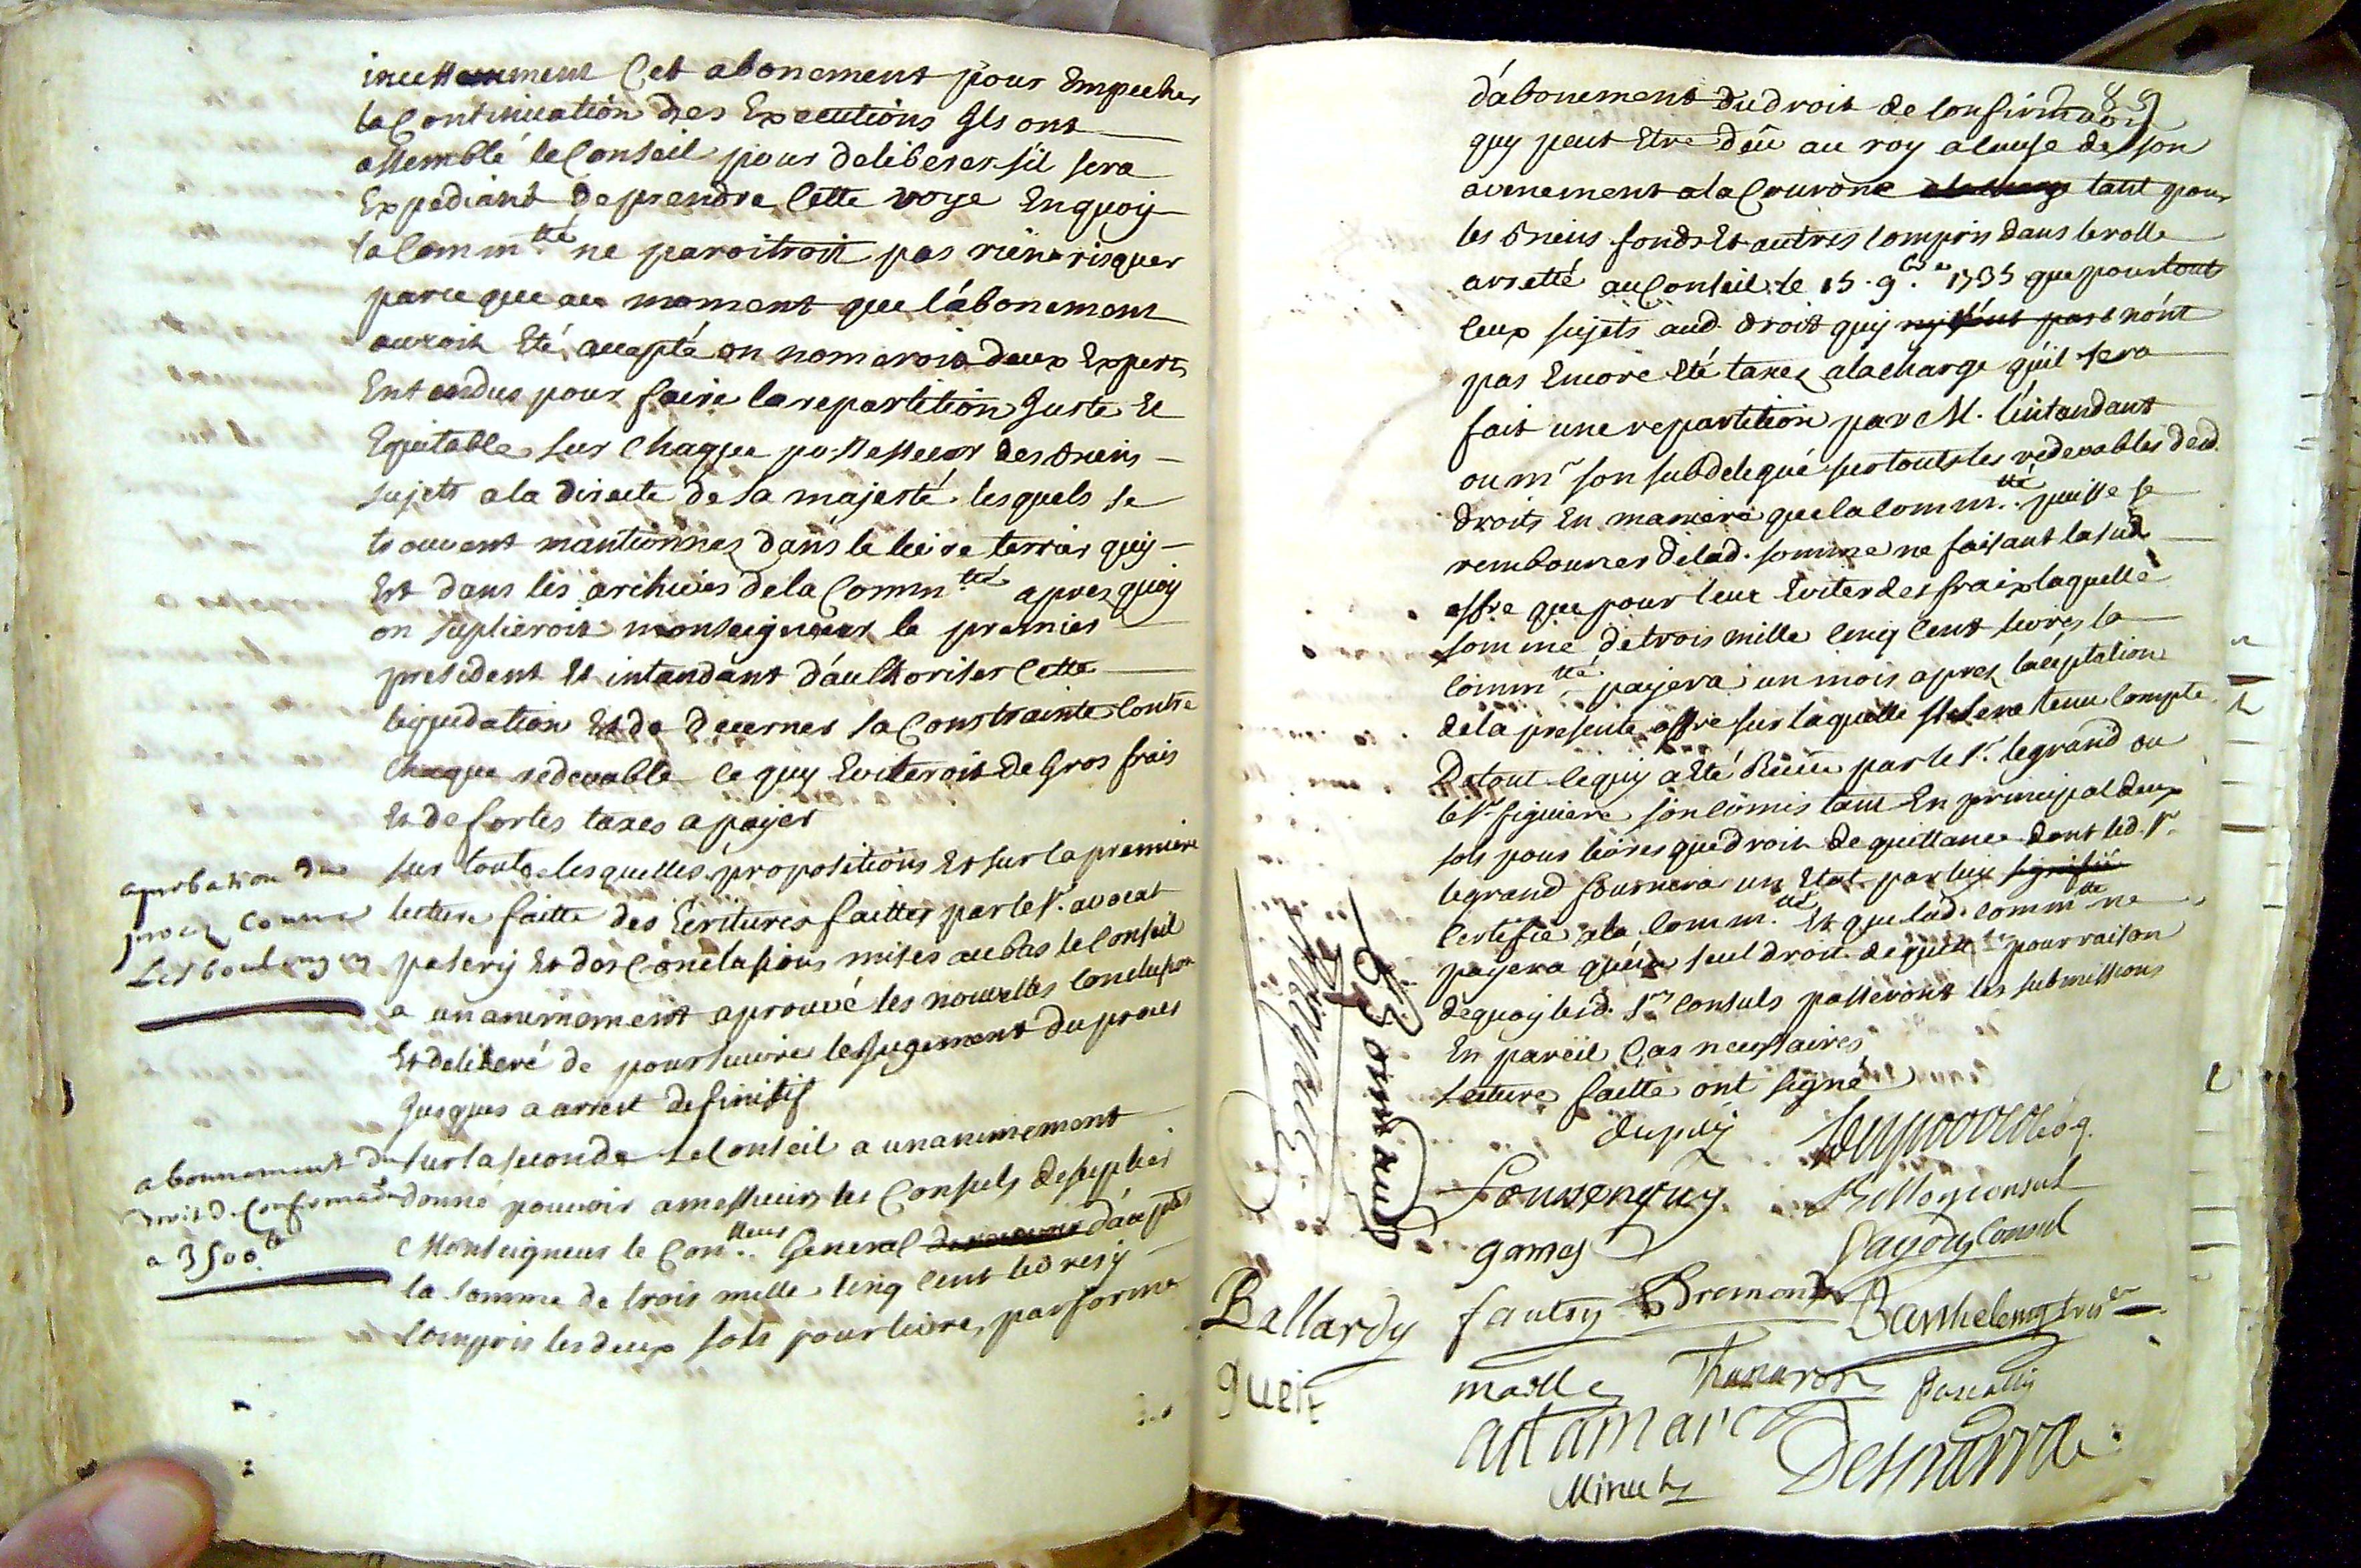 incessamment Cet abonement pour Empecher
la Continuation des Executions Ils ont
assemblé le Conseil pour deliberer s'il sera
Expediant de prendre Cette voye En quoy
la Comm.tté ne paroitroit pas rien risquer
parce que au moment que l'abonement
auroit Eté accepté on nomeroit deux Experts
Entendus pour faire la repartition Juste Et
Equitable sur Chaque possesseur des biens
sujets a la directe de sa majesté lesquels se
trouvent mantionnez dans le livre terrier quy
Est dans les archives de la Comm.tté apres quoy
on suplieroit monseigneur le premier
president Et intandant d'authoriser Cette
liquidation Et de decerner sa Constrainte Contre
Chaque redevable Ce quy Eviteroit de Gros frais
Et de fortes taxes a payer
aprobation du
procez Contre
Les boulengers
sur toutes lesquelles propositions Et sur la premiere
lecture faitte des Ecritures faittes par le Sr. avocat
pasery Et des Conclusions mises au bas le Conseil
a unanimement aprouvé les nouvelles Conclusions
Et deliberé de poursuivre le Jugement du proces
Jusques a arrest definitif
abonnement du
droit de Confirmaon
a 3500 lt
sur la seconde Le Conseil a unanimement
donné pouvoir a messieurs les Consuls de suplier
Monseigneur le Con.lleur General d'accepter
la somme de trois mille Cinq Cent livres y
Compris les deux sols pour livre, par forme
89
d'abonement du droit de Confirmaon
quy peut Etre dêu au roy a Cause de son
avenement a la Couronne a la charge tant pour
les biens fonds Et autres Compris dans le rolle
arretté au Conseil le 15. 9bre 1735 que pour tout
Ceux sujets aud. droit quy n'ont
pas Encore Eté taxez a la charge qu'il sera
fait une repartition par M. l'intandant
ou mr son subdelegué sur touts les redevables desd.
droits En maniere que la Comm.tté puisse se
rembourcer de lad. somme ne faisant lasud.
offre que pour leur Eviter des fraix laquelle
somme de trois mille Cinq Cent livres la
Comm.tté payera un mois apres l'aceptation
de la presente offre sur laquelle Il sera tenu Compte
De tout Ce quy a Eté Receu par le Sr. legrand ou
le Sr figuiere son Comis tant En principal deux
sols pour livres que droit de quittance dont led. Sr.
legrand fournira un Etat par luy signifié
Certifié a la Comm.tté Et que lad. Comm.tté ne
payera qu'un seul droit de quitt.ce pour raison
de quoy lesd. Srs Consuls passeront les submissions
En pareil Cas necessaires
Lecture faitte ont signé
dupuy
Consul
games
Payody Consul
Bonnaud
Ballardy fautry Bremond Barthelemy tresr
gueit maille Thanaron Pascallis
artamare
Minuty